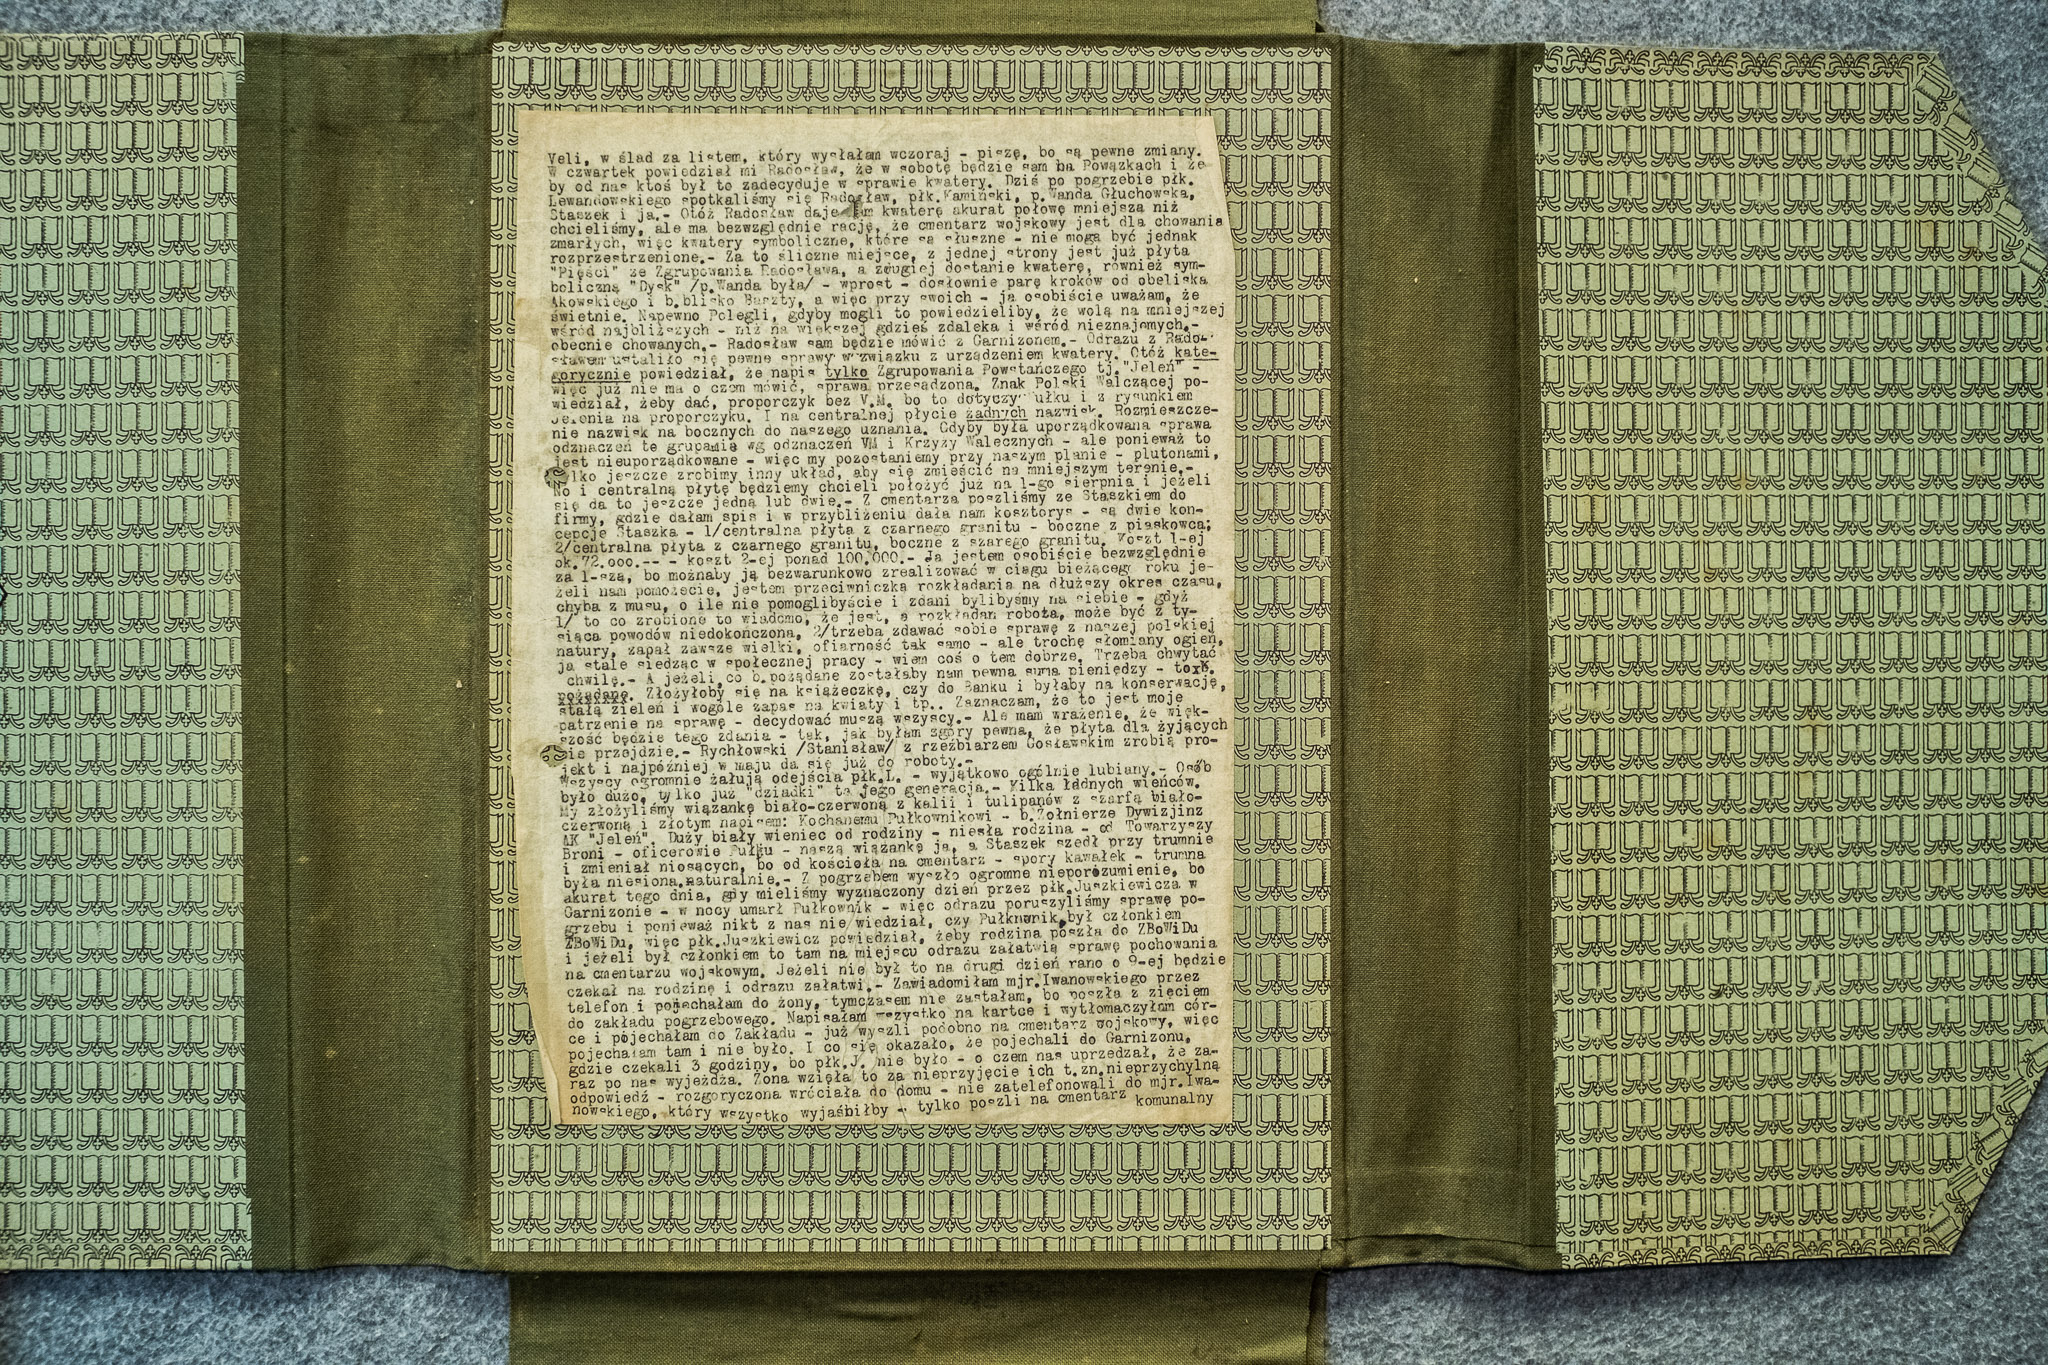 Veli, w ślad za listem, który wysłałam wczoraj - piszę, bo są pewne zmiany.
W czwartek powiedział mi Radosław, że w sobotę będzie sam na Powązkach i że
by od nas ktoś był to zadecyduje w sprawie kwatery. Dziś po pogrzebie płk.
Lewandowskiego spotkaliśmy się Radosław, płk.Kamiński, p.Wanda Głuchowska,
Staszek i ja.- Otóż Radosław daje kwaterę akurat połowę mniejsza niż
chcieliśmy, ale ma bezwzględnie rację, że cmentarz wojskowy jest dla chowania
zmarłych, więc kwatery symboliczne, które są słuszne - nie mogą być jednak
rozprzestrzenione.- Za to śliczne miejsce, z jednej strony jest już płyta
"Pięści" ze Zgrupowania Radosława, a zdugiej dostanie kwaterę, również sym-
boliczną "Dysk" /p.Wanda była/ - wprost - dosłownie parę kroków od obeliska
Akowskiego i b.blisko Baszty, a więc przy swoich - ja osobiście uważam, że
świetnie. Napewno Polegli, gdyby mogli to powiedzieliby, że wolą na mniejszej
wśród najbliższych - niż na większej gdzieś zdaleka i wśród nieznajomych,-
obecnie chowanych.- Radosław sam będzie mówić z Garnizonem.- Odrazu z Rado-
sławem ustaliło się pewne sprawy w związku z urządzeniem kwatery. Otóż kate-
gorycznie powiedział, że napis tylko Zgrupowania Powstańczego tj."Jeleń" -
więc już nie ma o czem mówić, sprawa przesądzona. Znak Polski Walczącej po-
wiedział, żeby dać, proporczyk bez V.M. bo to dotyczy ułku i z rysunkiem
Jelenia na proporczyku. I na centralnej płycie żadnych nazwisk. Rozmieszcze-
nie nazwisk na bocznych do naszego uznania. Gdyby była uporządkowana sprawa
odznaczeń te grupamia wg odznaczeń VM i Krzyży Walecznych - ale ponieważ to
jest nieuporządkowane - więc my pozostaniemy przy naszym planie - plutonami,
tylko jeszcze zrobimy inny układ, aby się zmieścić na mniejszym terenie.-
No i centralną płytę będziemy chcieli położyć już na 1-go sierpnia i jeżeli
się da to jeszcze jedną lub dwie.- Z cmentarza poszliśmy ze Staszkiem do
firmy, gdzie dałam spis i w przybliżeniu dała nam kosztorys - są dwie kon-
cepcje Staszka - 1/centralna płyta z czarnego granitu - boczne z piaskowca;
2/centralna płyta z czarnego granitu, boczne z szarego granitu. Koszt 1-ej
ok.72.ooo.-- - koszt 2-ej ponad 100.000.- Ja jestem osobiście bezwzględnie
za 1-szą, bo możnaby ją bezwarunkowo zrealizować w ciągu bieżącego roku je-
żeli nam pomożecie, jestem przeciwniczką rozkładania na dłuższy okres czasu,
chyba z musu, o ile nie pomoglibyście i zdani bylibyśmy na siebie - gdyż
1/ to co zrobione to wiadomo, że jest, a rozkładan robota, może być z ty-
siąca powodów niedokończona, 2/trzeba zdawać sobie sprawę z naszej polskiej
natury, zapał zawsze wielki, ofiarność tak samo - ale trochę słomiany ogień,
ja stale siedząc w społecznej pracy - wiem coś o tem dobrze. Trzeba chwytać
chwilę.- A jeżeli co b.pożądane zostałaby nam pewna suma pieniędzy -
pożądane. Złożyłoby się na książeczkę, czy do Banku i byłaby na konserwację,
stałą zieleń i wogóle zapas na kwiaty i tp.. Zaznaczam, że to jest moje
patrzenie na sprawę - decydować muszą wszyscy.- Ale mam wrażenie, że więk-
szość będzie tego zdania - tak, jak byłam zgóry pewna, że płyta dla żyjących
nie przejdzie.- Rychłowski /Stanisław/ z rzeźbiarzem Gosławskim zrobią pro-
jekt i najpóźniej w maju da się już do roboty.-
Wszyscy ogromnie żałują odejścia płk.L. - wyjątkowo ogólnie lubiany.- Osób
było dużo, tylko już "dziadki" ta jego generacja.- Kilka ładnych wieńców.
My złożyliśmy wiązankę biało-czerwoną z kalii i tulipanów z szarfą biało-
czerwoną i złotym napisem: Kochanemu Pułkownikowi - b.Żołnierze Dywizjinz
AK "Jeleń". Duży biały wieniec od rodziny - niesła rodzina - od Towarzyszy
Broni - oficerowie Pułku - naszą wiązankę ja, a Staszek szedł przy trumnie
i zmieniał niosących, bo od kościoła na cmentarz - spory kawałek - trumna
była niesiona.naturalnie.- Z pogrzebem wyszło ogromne nieporozumienie, bo
akurat tego dnia, gdy mieliśmy wyznaczony dzień przez płk.Juszkiewicza w
Garnizonie - w nocy umarł Pułkownik - więc odrazu poruszyliśmy sprawę po-
grzebu i ponieważ nikt z nas nie wiedział, czy Pułknwnik był członkiem
ZBoWiDu, więc płk.Juszkiewicz powiedział, żeby rodzina poszła do ZBoWiDu
i jeżeli był członkiem to tam na miejscu odrazu załatwią sprawę pochowania
na cmentarzu wojskowym. Jeżeli nie był to na drugi dzień rano o 9-ej będzie
czekał na rodzinę i odrazu załatwi.- Zawiadomiłam mjr.Iwanowskiego przez
telefon i pojechałam do żony, tymczasem nie zastałam, bo poszła z zięciem
do zakładu pogrzebowego. Napisałam wszystko na kartce i wytłomaczyłam cór-
ce i pojechałam do Zakładu - już wyszli podobno na cmentarz wojskowy, więc
pojechałam tam i nie było. I co się okazało, że pojechali do Garnizonu,
gdzie czekali 3 godziny, bo płk.J. nie było - o czem nas uprzedzał, że za-
raz po nas wyjeżdża. Żona wzięła to za nieprzyjęcie ich t.zn.nieprzychylną
odpowiedź - rozgoryczona wróciała do domu - nie zatelefonowali do mjr.Iwa-
nowskiego, który wszystko wyjaśbiłby - tylko poszli na cmentarz komunalny